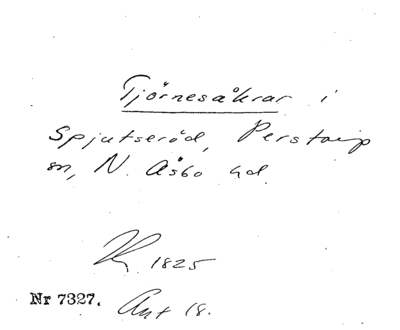 Tjörnesåkrar i
Spjutseröd, Perstorp
sn, N. Åsbo hd
K 1825
Nr 7327. Ant 18.